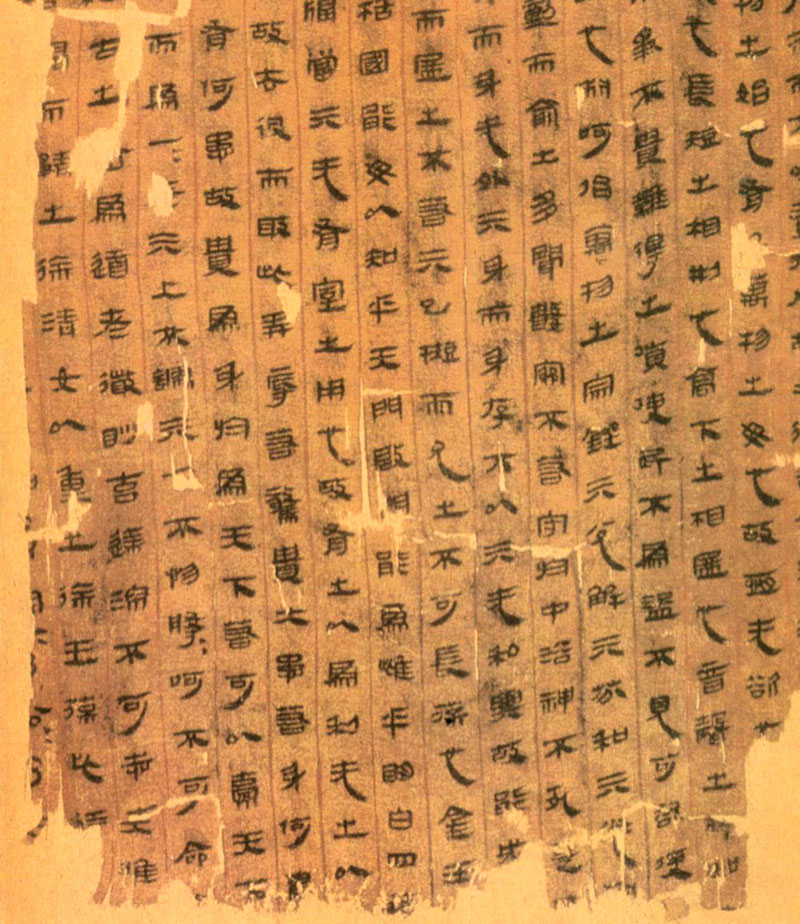 物之始也有名萬物之母也故恒无欲也
也長短之相刑也高下之相盈也音聲之相和
不貴難得之貨使民不為盜不見可欲使
也淵呵佁萬物之宗銼亓兌解亓芬和亓光
動而俞出多聞數窮不若守於中浴神不死是
而身先外亓身而身存不以亓无私與故能成
而盈之不若亓已而允之不可長葆也金玉
栝國能毋以知乎天門啟闔能為雌乎明白四達
當亓无有室之用也故有之以為利无之以
故去彼而取此弄辱若驚貴大患若身何
有何患故貴為身於為天下若可以橐天下
而為一一者亓上不謬亓下不物尋呵不可命
古之善為道者微眇玄達深不可志夫唯
而靜之徐清女以重之徐生葆此道